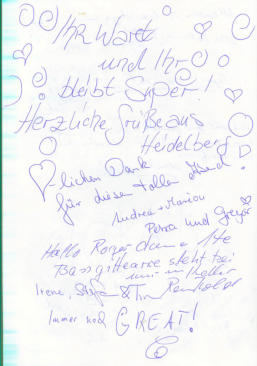 Ihr wart
und Ihr
bleibt Super!
Herzliche Grüße aus
Heidelberg
-lichen Dank
für diesen tollen Abend!
Andrea + Marion
Petra und Gregor
Hallo Roger deine 1te
Bassgitarre steht bei
mir im Keller
Irene, & Tim
Immer noch GREAT!